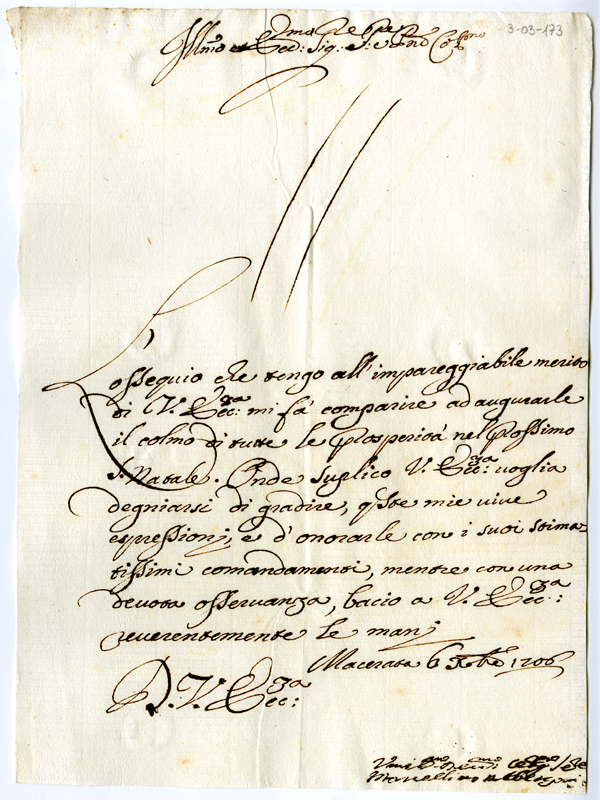 3-03-173
Illmo et Ecc:mo Sig:re
L'ossequio che tengo all'impareggiabile merito
di V. Ecc:za mi fà comparire ad augurarle
il colmo di tutte le prosperità nel prossimo
S. Natale. Onde suplico V. Ecc:za voglia
degniarsi di gradire, q͂ste mie vive
espressioni, e d'onorarle con i suoi stima-
tissimi comandamenti, mentre con una
devota osservanza, bacio a V. Ecc:za
reverentemente le mani
Macerata 6 Xbre 1706
D. V. Ecc:za